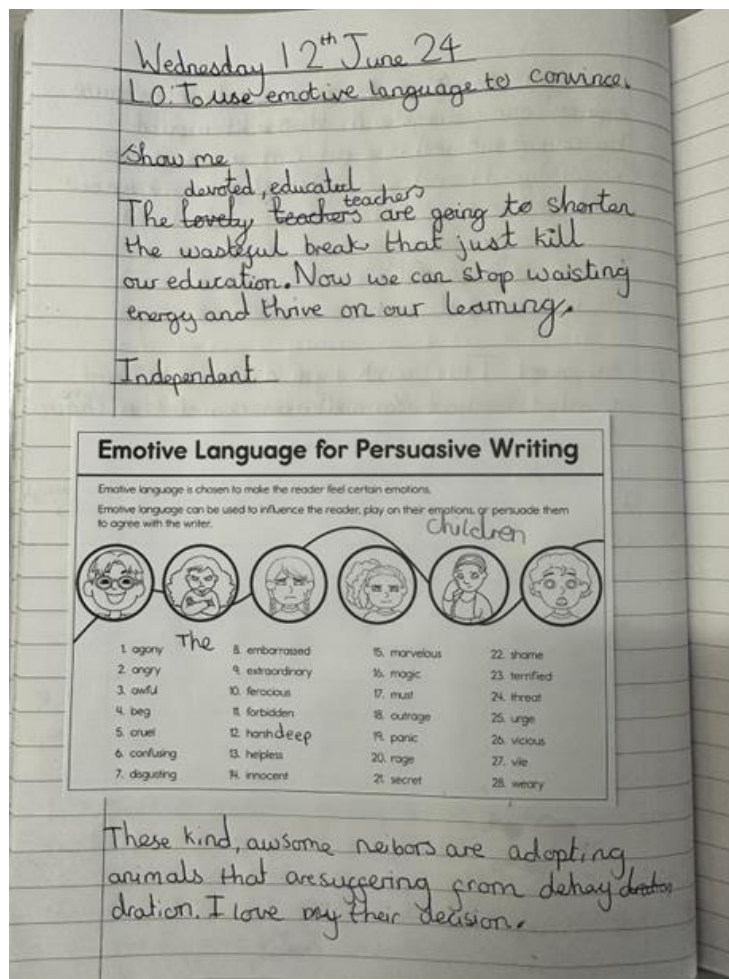 Wednesday 12th June 24
LO: To use emotive language to convince.
Show me
devoted, educated
teachers
The lovely teachers are going to shorten
the wasteful break that just kill
our education. Now we can stop waisting
energy and thrive on our learning.
Independant
Emotive Language for Persuasive Writing
Emotive language is chosen to make the reader feel certain emotions.
Emotive language can be used to influence the reader, play on their emotions, or persuade them
to agree with the writer.
Children
The
1. agony
2. angry
3. awful
4. beg
5. cruel
6. confusing
7. disgusting
8. embarrassed
9. extraordinary
10. ferocious
11. forbidden
12. harsh deep
13. helpless
14. innocent
15. marvelous
16. magic
17. must
18. outrage
19. panic
20. rage
21. secret
22. shame
23. terrified
24. threat
25. urge
26. vicious
27. vile
28. weary
These kind, awsome neibors are adopting
animals that are suffering from dehay
dration. I love my their decision.